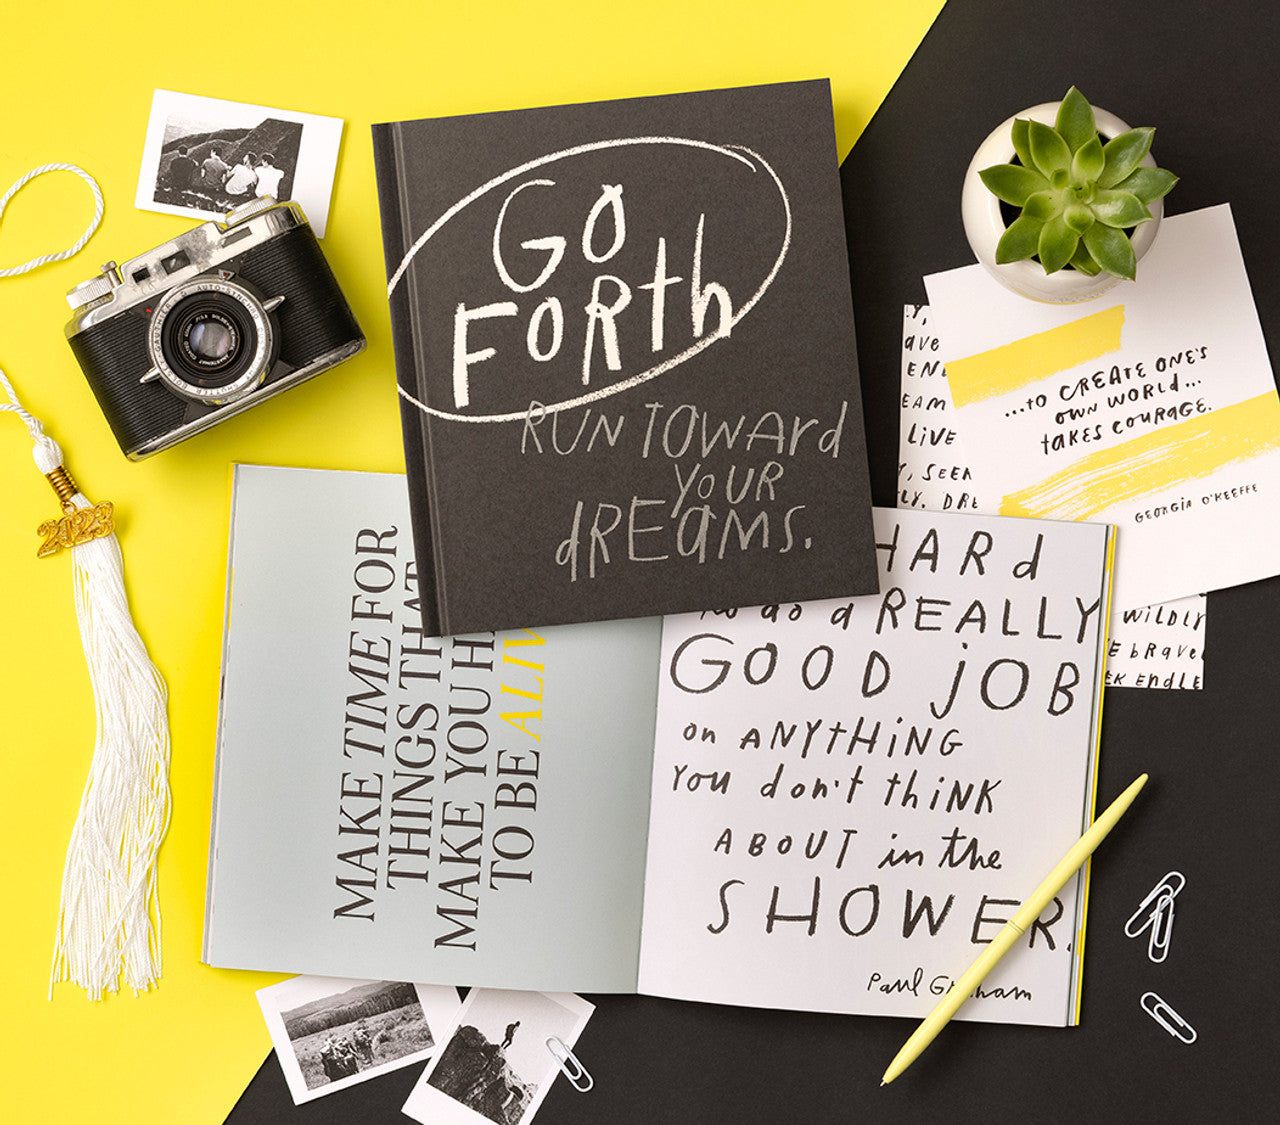 GO
FORth
RUN TOWARd
YOUR
dREAMS.
2023
MAKE TIME FOR
THINGS THAT
MAKE YOU H
TO BE ALIV
HARd
to do a REALLY
GOOD jOB
on ANYtHiNG
You don't thiNK
ABOUT in the
SHOWER.
Paul Graham
...to CREATE ONE'S
OWN WORLD...
tAKES COURAGE.
GEORGiA O'KEEFFE
ave
LiVE
WiLDLY
bRAVE
ENdLE